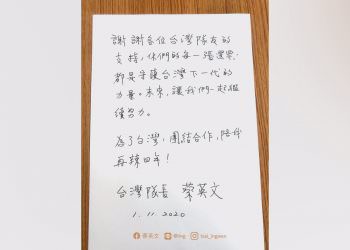 謝謝各位台灣隊友的
支持,你們的每一張選票,
都是守護台灣下一代的
力量。未來,讓我們一起繼
續努力。
為了台灣,團結合作,陪我
再辣四年!
台灣隊長 蔡英文
1. 11 2020
蔡英文 @iing tsai_ingwen